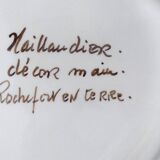 Maillaudier.
décor main.
Rochefort en terre.